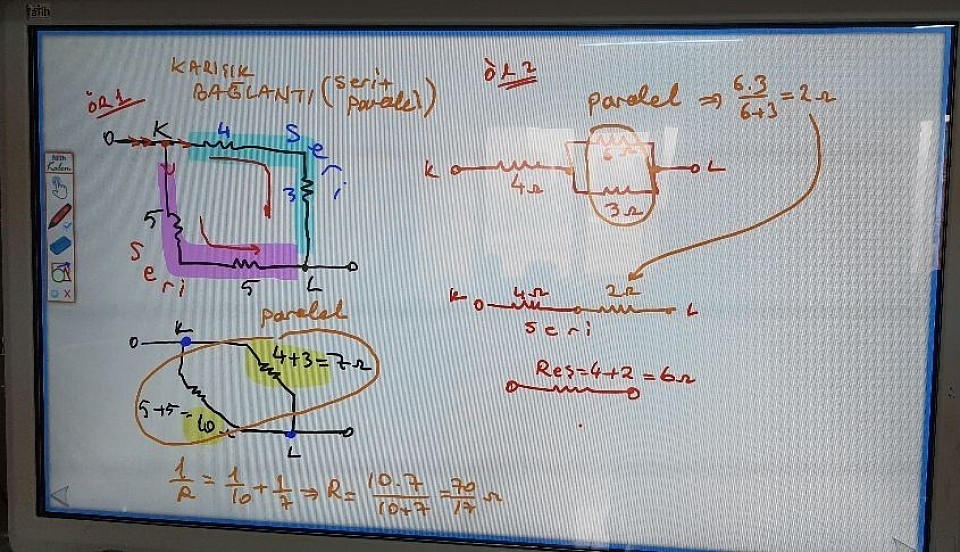 fatih
KARIŞIK
BAĞLANTI (seri+
paralel)
ÖR1
K
4
Seri
3
5
Seri
5
L
fatih
Kalem
X
paralel
K
4+3=7Ω
5+5=10
L
1/R = 1/10 + 1/7 ⇒ R = 10.7/10+7 = 70/17 Ω
ÖR2
paralel ⇒ 6.3/6+3 = 2Ω
K
4Ω
6Ω
3Ω
L
K
4Ω
2Ω
L
seri
Reş=4+2=6Ω